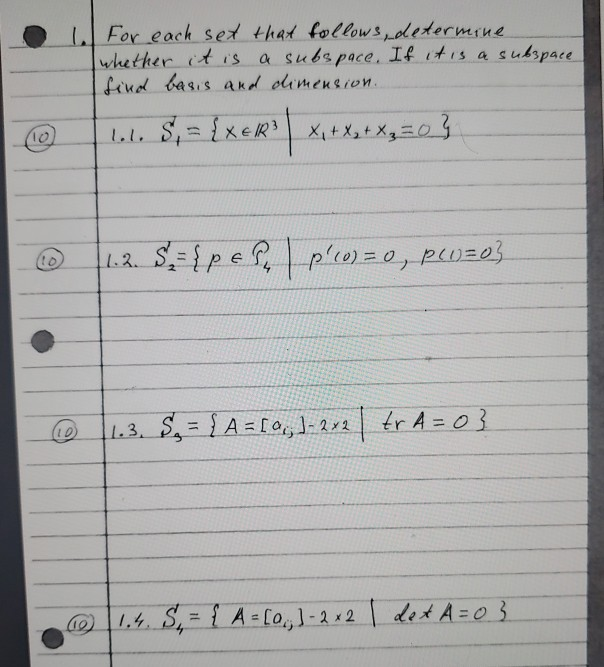 1. For each set that follows, determine
whether it is a subspace. If it is a subspace
find basis and dimension.
(10) 1.1. S₁ = { x ∈ ℝ³ | x₁ + x₂ + x₃ = 0 }
(10) 1.2. S₂ = { p ∈ P₄ | p'(0) = 0, p(1) = 0 }
(10) 1.3. S₃ = { A = [aᵢ,ⱼ] - 2×2 | tr A = 0 }
(10) 1.4. S₄ = { A = [aᵢ,ⱼ] - 2×2 | det A = 0 }